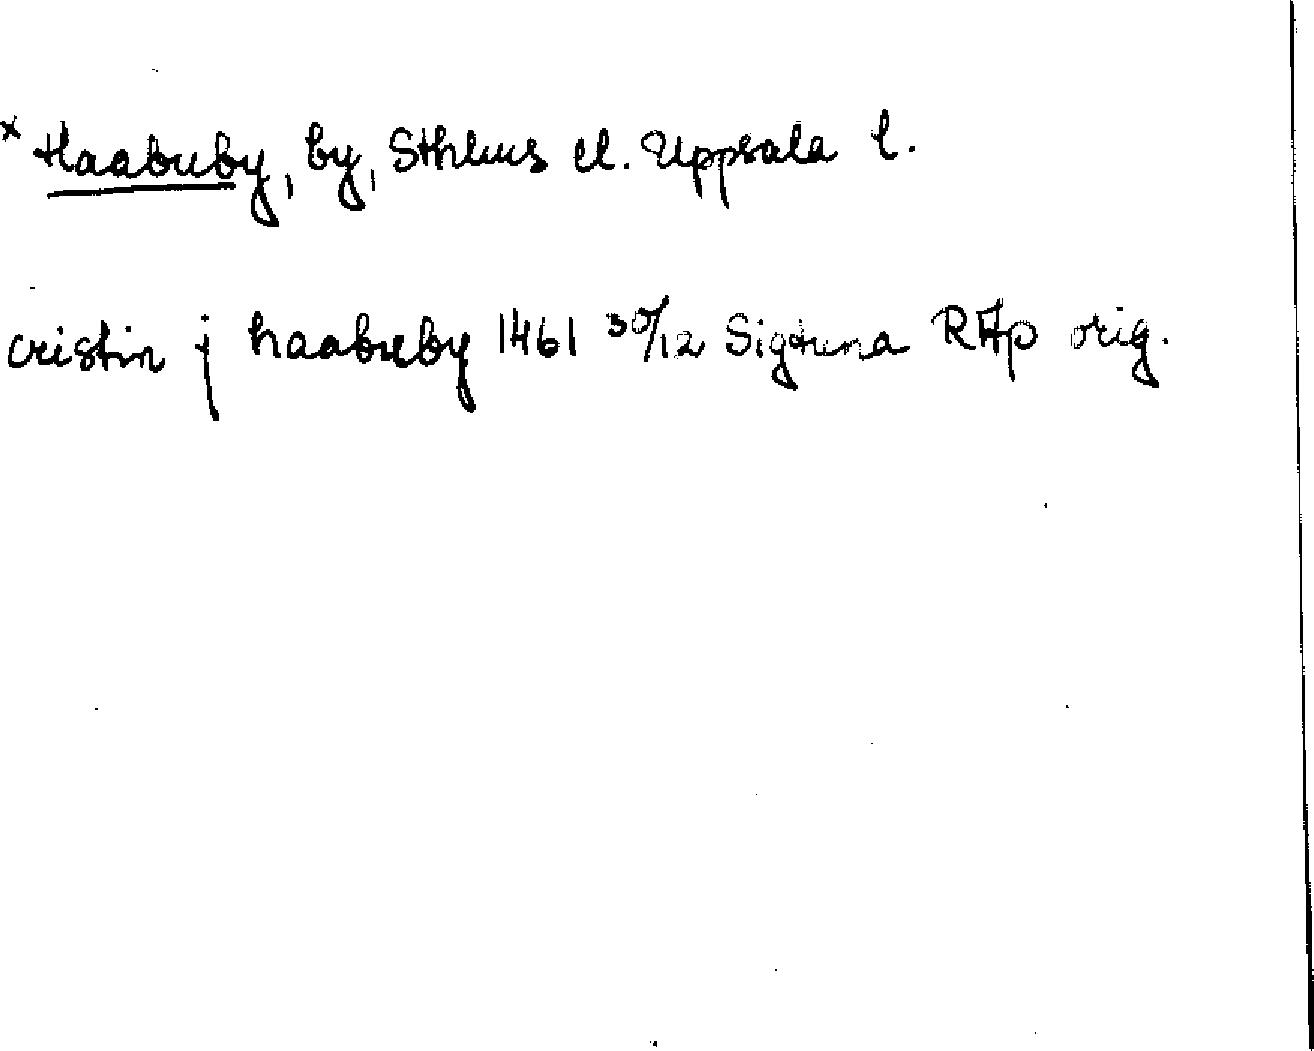 x Haabuby, by, Sthlms el. Uppsala l.
cristin j haabuby 1461 30/12 Sigtuna RAp orig.